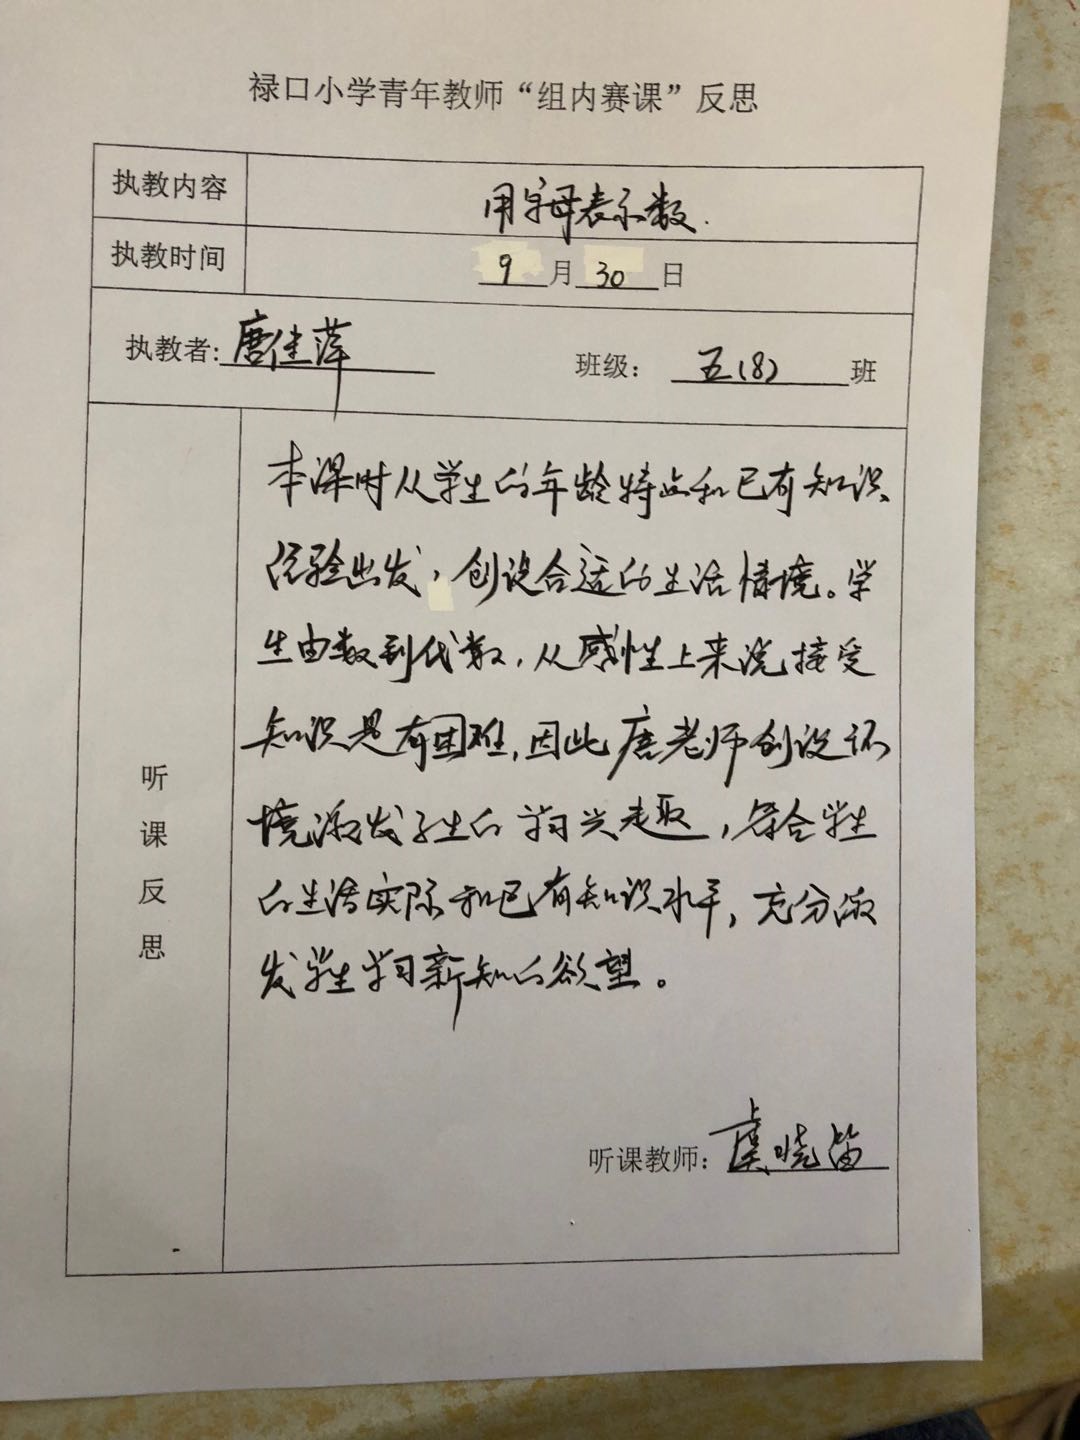 禄口小学青年教师“组内赛课”反思
执教内容 用字母表示数.
执教时间 9月30日
执教者:唐佳萍 班级： 五(8) 班
听课反思
本课时从学生的年龄特点和已有知识
经验出发，创设合适的生活情境。学
生由数到代数，从感性上来说接受
知识是有困难，因此唐老师创设环
境激发学生的学习兴趣，符合学生
的生活实际和已有知识水平，充分激
发学生学习新知的欲望。
听课教师：虞晓笛